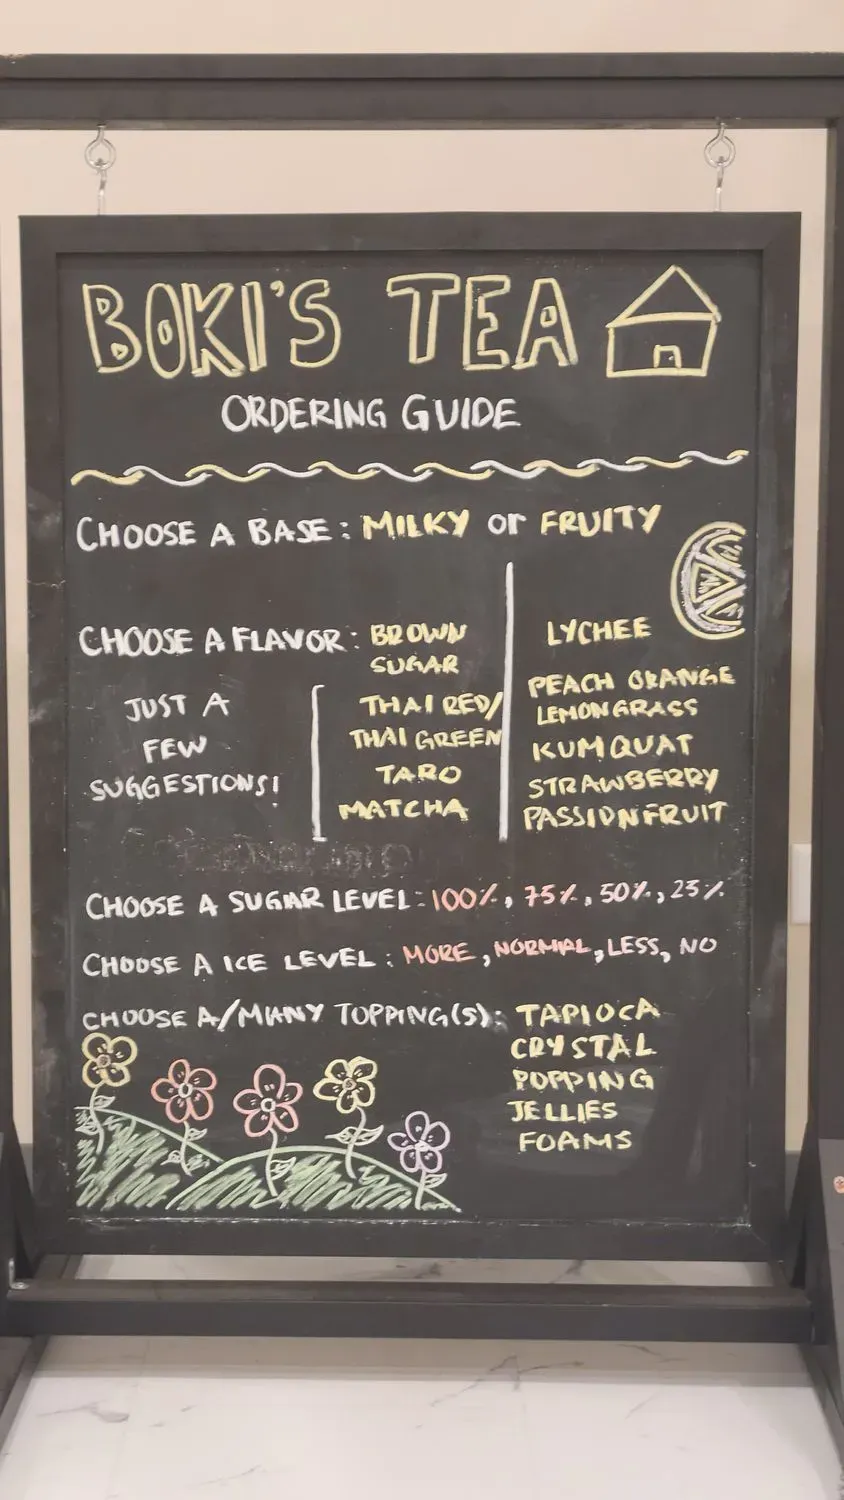 BOKI'S TEA
ORDERING GUIDE
CHOOSE A BASE: MILKY or FRUITY
CHOOSE A FLAVOR: BROWN
SUGAR
JUST A
FEW
SUGGESTIONS!
THAI RED/
THAI GREEN
TARO
MATCHA
LYCHEE
PEACH ORANGE
LEMONGRASS
KUMQUAT
STRAWBERRY
PASSIONFRUIT
CHOOSE A SUGAR LEVEL: 100%, 75%, 50%, 25%
CHOOSE A ICE LEVEL: MORE, NORMAL, LESS, NO
CHOOSE A/MANY TOPPING(S): TAPIOCA
CRYSTAL
POPPING
JELLIES
FOAMS